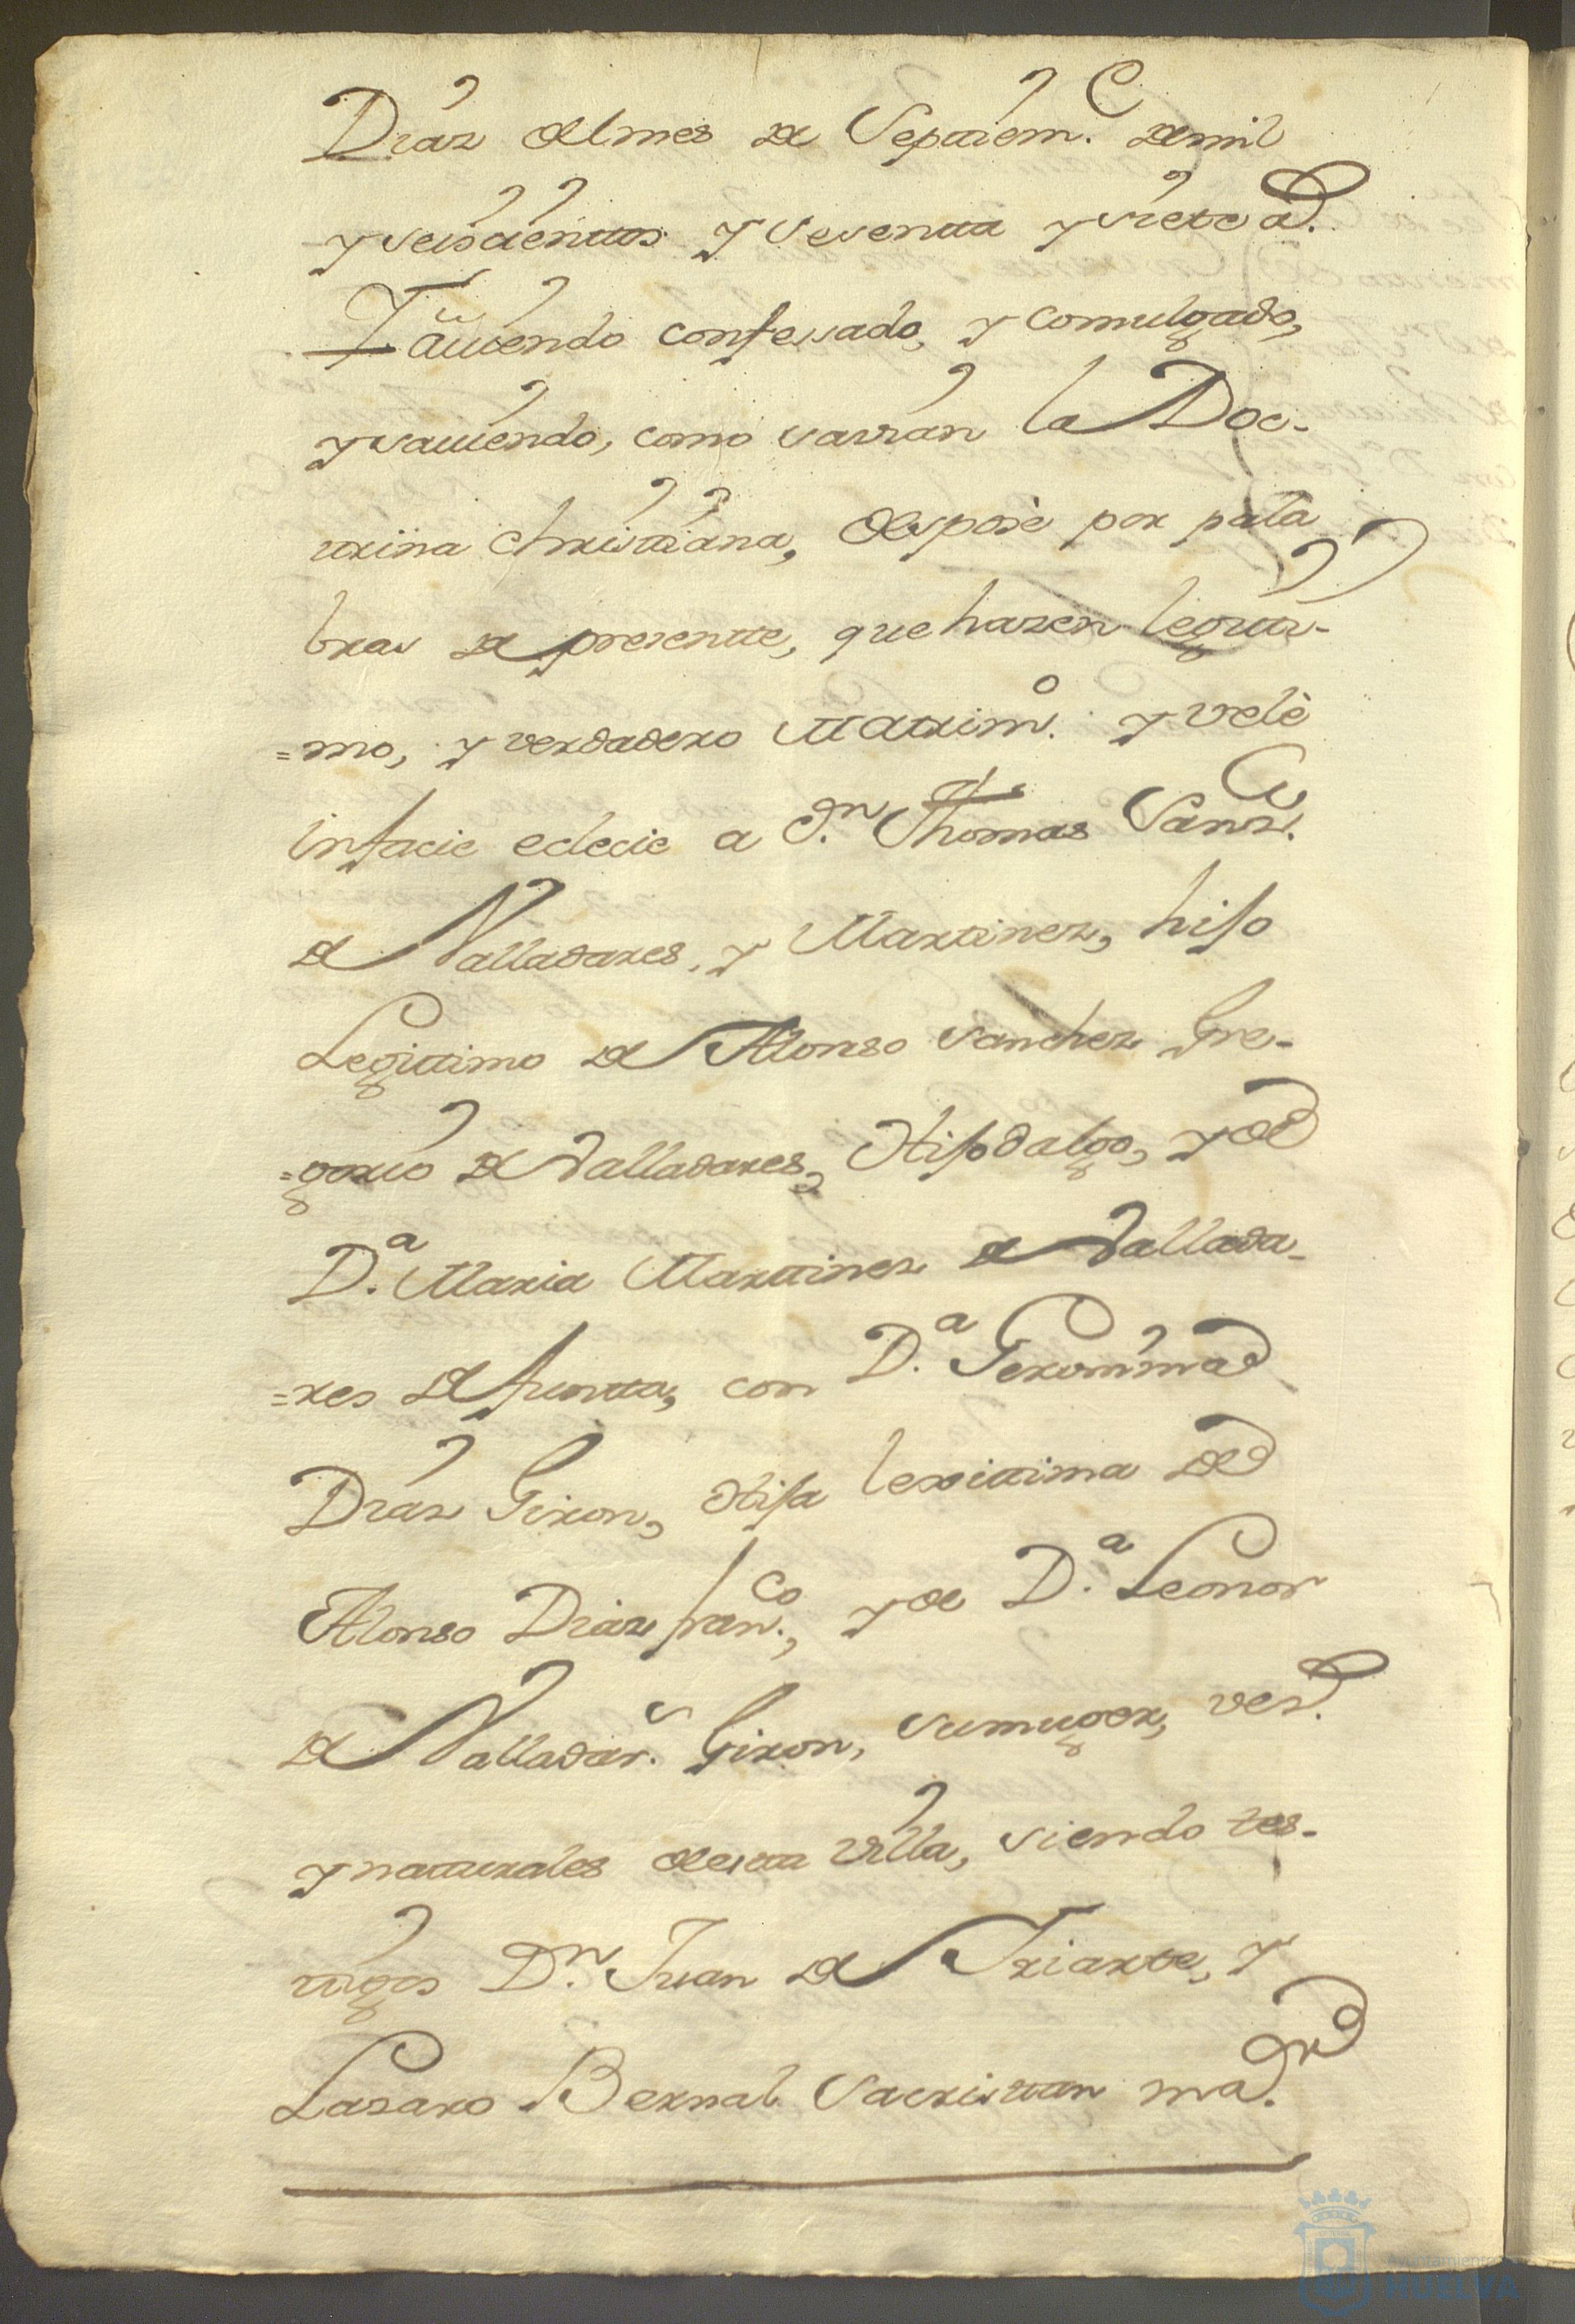 Dias del mes de Septiem.e de mil
y seiscienttos y sesentta y siete a.s
Y aviendo confessado, y comulgado,
y saviendo, como savian la Doc-
trina christtiana, desposè por pala
bras de presentte, que hazen legiti-
=mo, y verdadero Mattrim.o y velè
infacie eclecie a D.n Thomas Sanz.
de Valladares, y Marttinez, hijo
Legittimo de Alonso Sanchez Gre-
=gorio de Valladares, Hijodalgo, y de
D.a Maria Marttinez de Vallada-
=res difuntta, con D.a Geronima
Diaz Giron, Hija lexittima de
Alonso Diaz fran.co, y de D.a Leonor
de Valladar.s Giron, su muger, vez.s
y natturales de estta Villa, siendo tes-
tigos D.n Juan de Yriartte, y
Lazaro Bernal Sacristtan ma.or
Ayuntamiento de
HUELVA